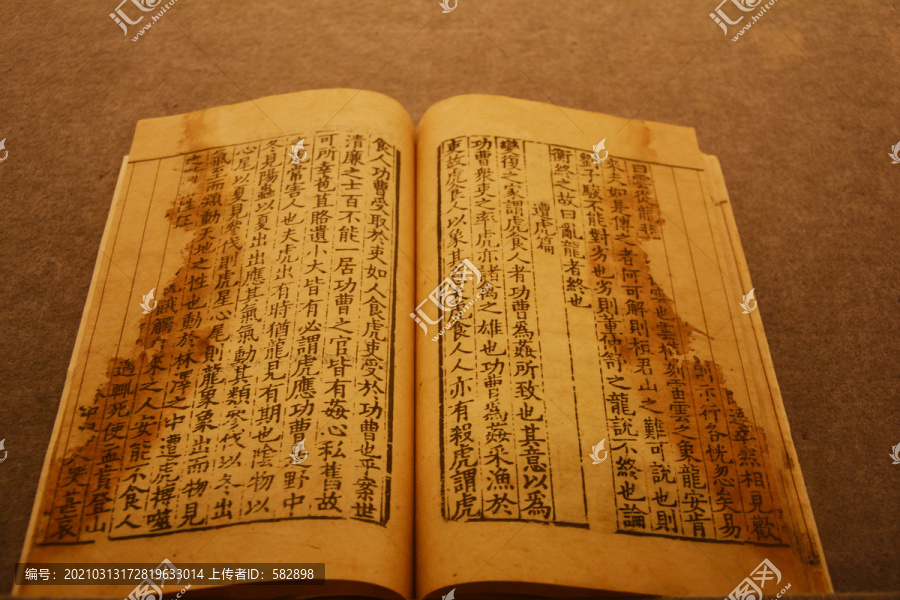 然相見歡
示行各恍忽矣易
曰雲從龍非雲樽刻雷雲之象龍安肯
來夫如是傳之者何可解則桓君山之難可說也則
子駿不能對劣也劣則董仲舒之龍說不終也論
衡終之故曰亂龍者終也
遭虎篇
變復之家謂虎食人者功曹爲姦所致也其意以爲
功曹衆吏之率虎亦諸禽之雄也功曹爲姦采漁於
吏故虎食人以象其意食人人亦有殺虎謂虎
食人功曹受取於吏如人食虎吏受於功曹也乎案世
清廉之士百不能一居功曹之官皆有姦心私舊故
可所幸苞苴賂遺小大皆有必謂虎應功曹是野中
常害人也夫虎出有時猶龍見有期也陰物以
冬見陽蟲以夏出出應其氣氣動其類參伐以冬出
心尾以夏見參伐則虎星心尾則龍象象出而物見
氣至而類動天地之性也動於林澤之中遭虎搏噬
之性狂來之人安能不食人
輒死便而貴登山
人哭甚哀
编号：20210313172819633014 上传者ID：582898